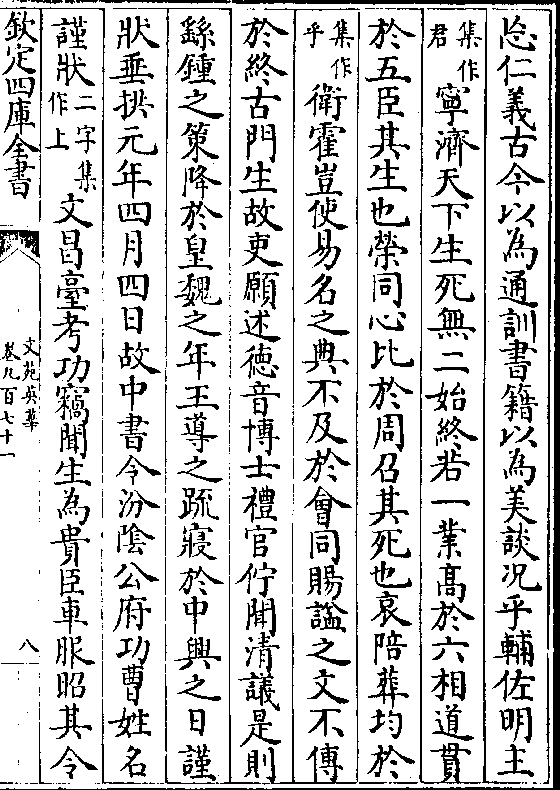 忘仁義古今以為通訓書籍以為美談况乎輔佐明主
集作君寧濟天下生死無二始終若一業髙於六相道貫
於五臣其生也榮同心比於周召其死也哀陪葬均於
集作乎衛霍豈使易名之典不及於㑹同賜諡之文不傳
於終古門生故吏願述德音博士禮官佇聞清議是則
繇鍾之策降於皇魏之年王導之疏寢於中興之日謹
狀垂拱元年四月四日故中書令汾隂公府功曹姓名
謹狀二字集作上文昌臺考功竊聞生為貴臣車服昭其令
欽定四庫全書
文苑英華
卷九百七十一
八